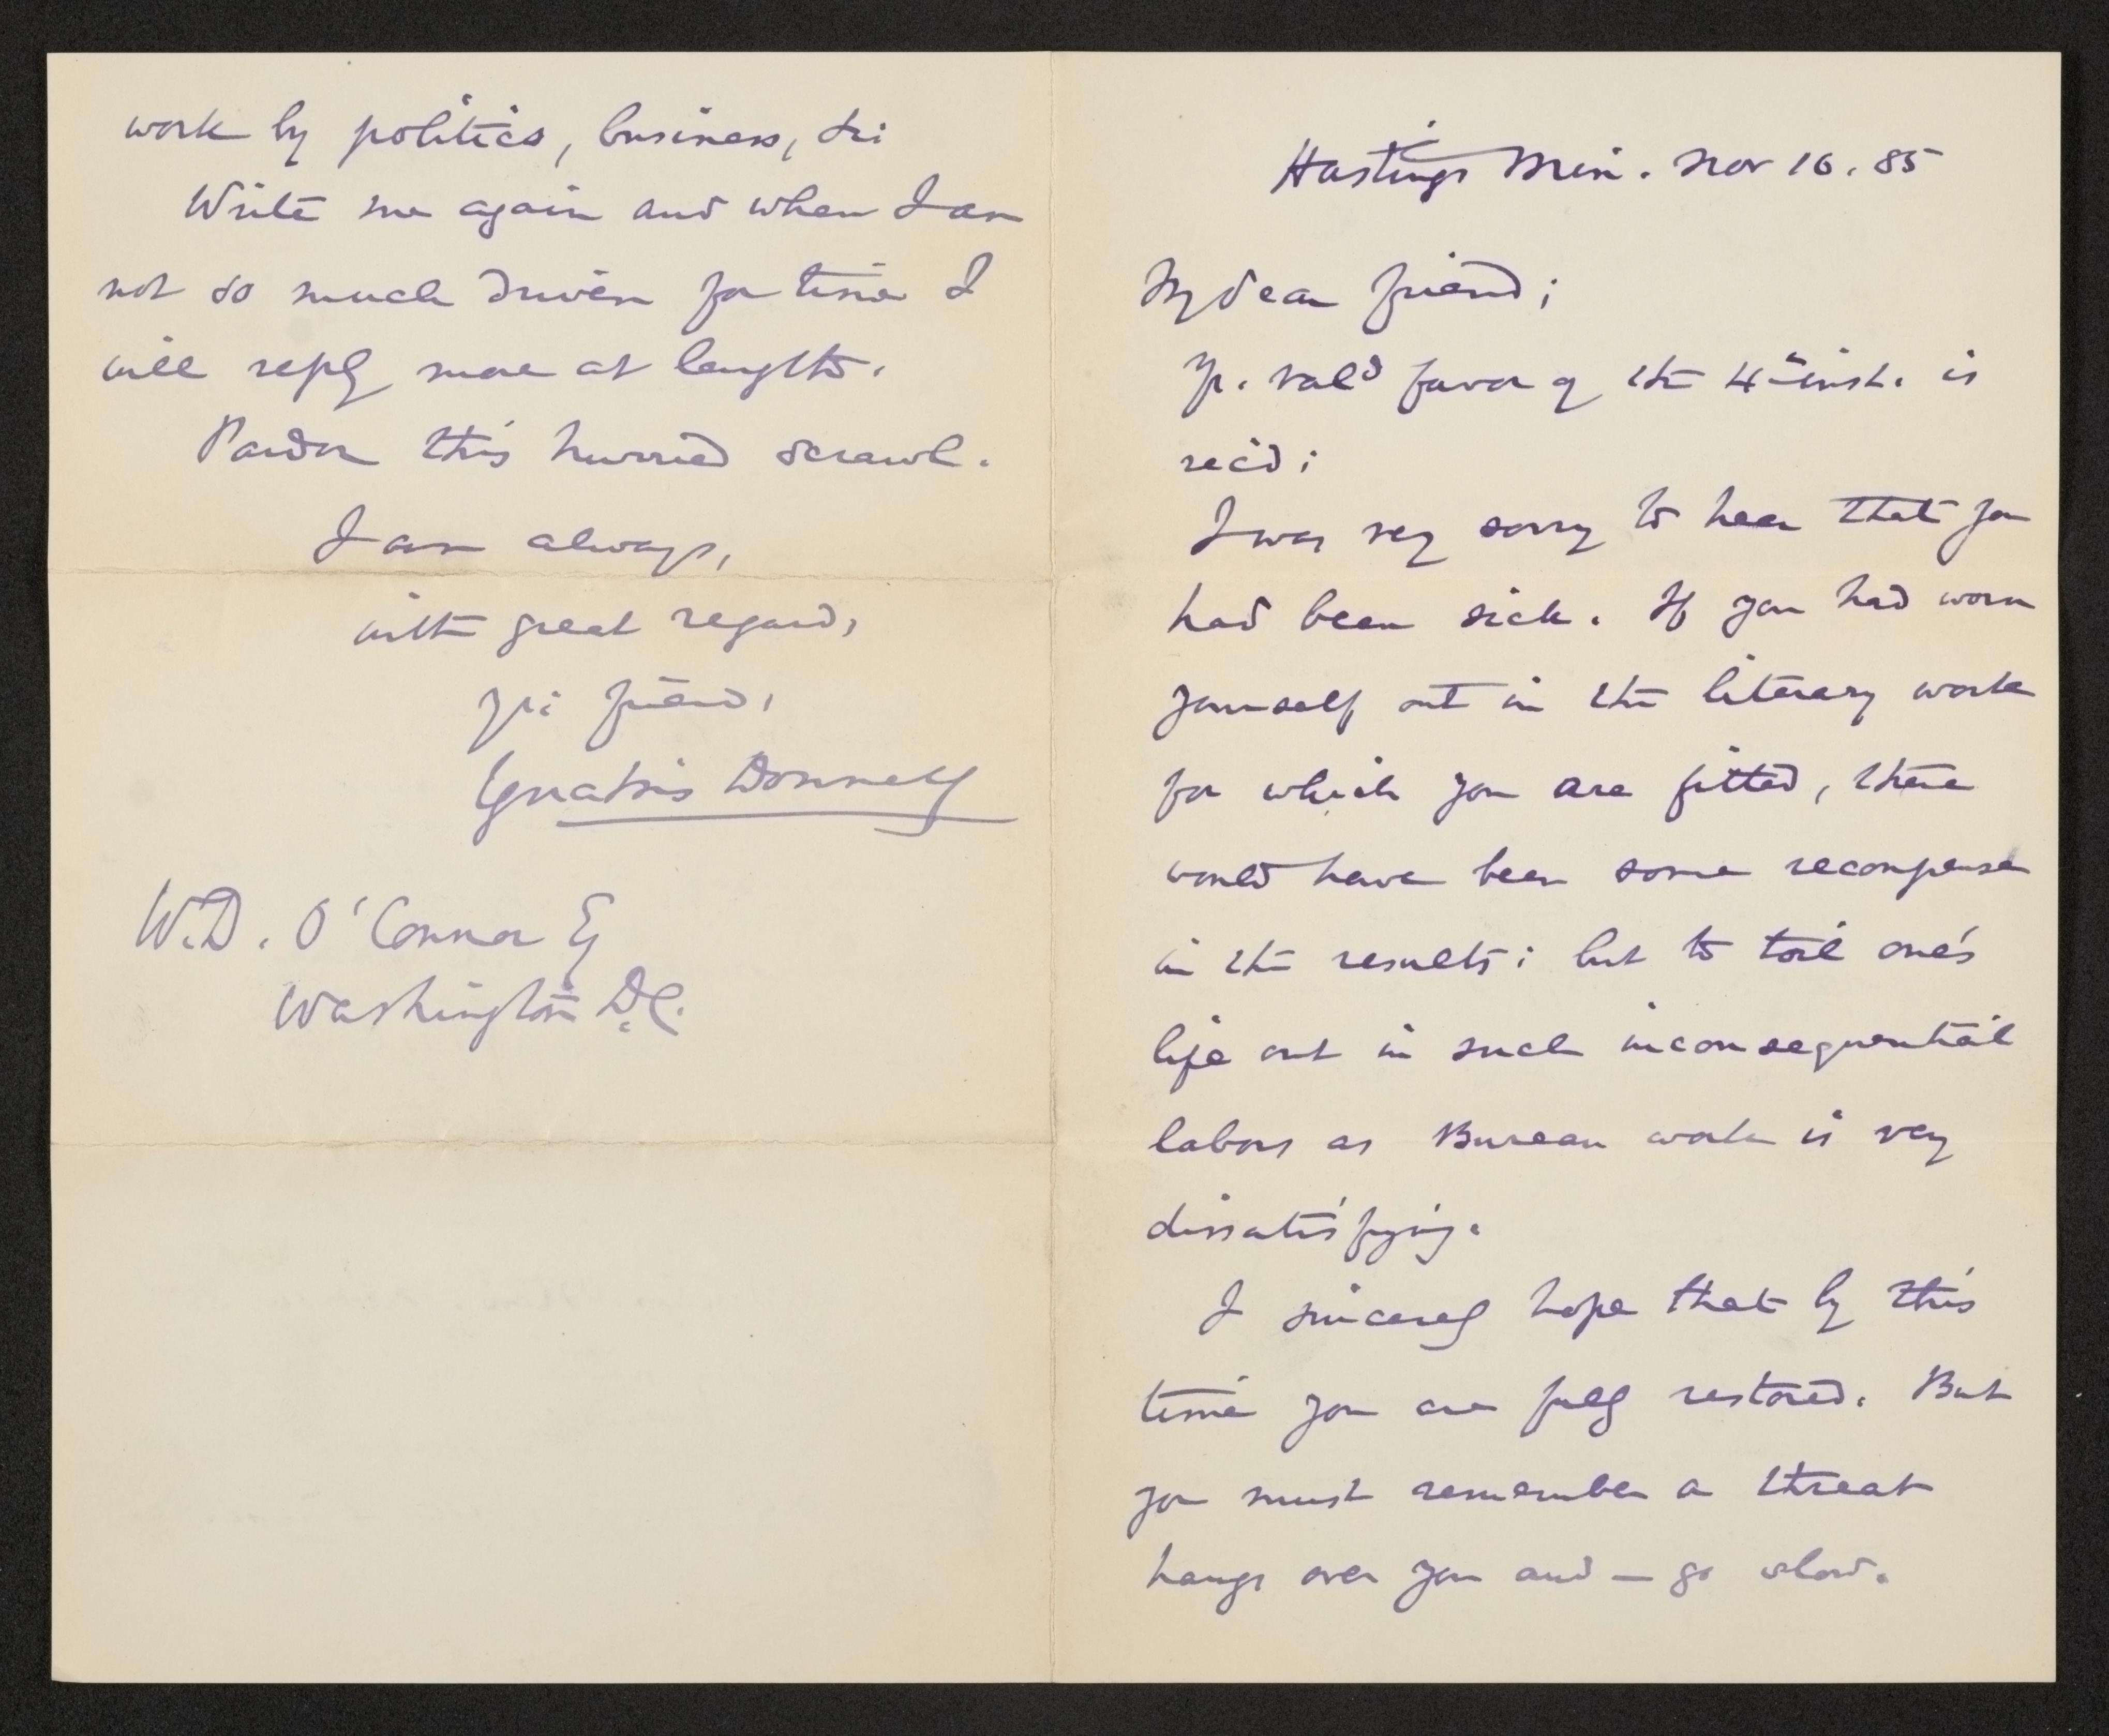 Hastings Min. Nov 16. 85
My dear friend;
Yr. val'd favor of the 4th inst. is
rec'd;
I was very sorry to hear that you
had been sick. If you had worn
yourself out in the literary work
for which you are fitted, there
would have been some recompense
in the results; but to toil one's
life out in such inconsequential
labors as Bureau work is very
dissatisfying.
I sincerely hope that by this
time you are fully restored. But
you must remember a threat
hangs over you and — go slow.
work by politics, business, &c
Write me again and when I am
not so much driven for time I
will reply more at length.
Pardon this hurried scrawl.
I am always,
with great regard,
yr. friend,
Ignatius Donnelly
W.D. O'Connor Esq
Washington D.C.